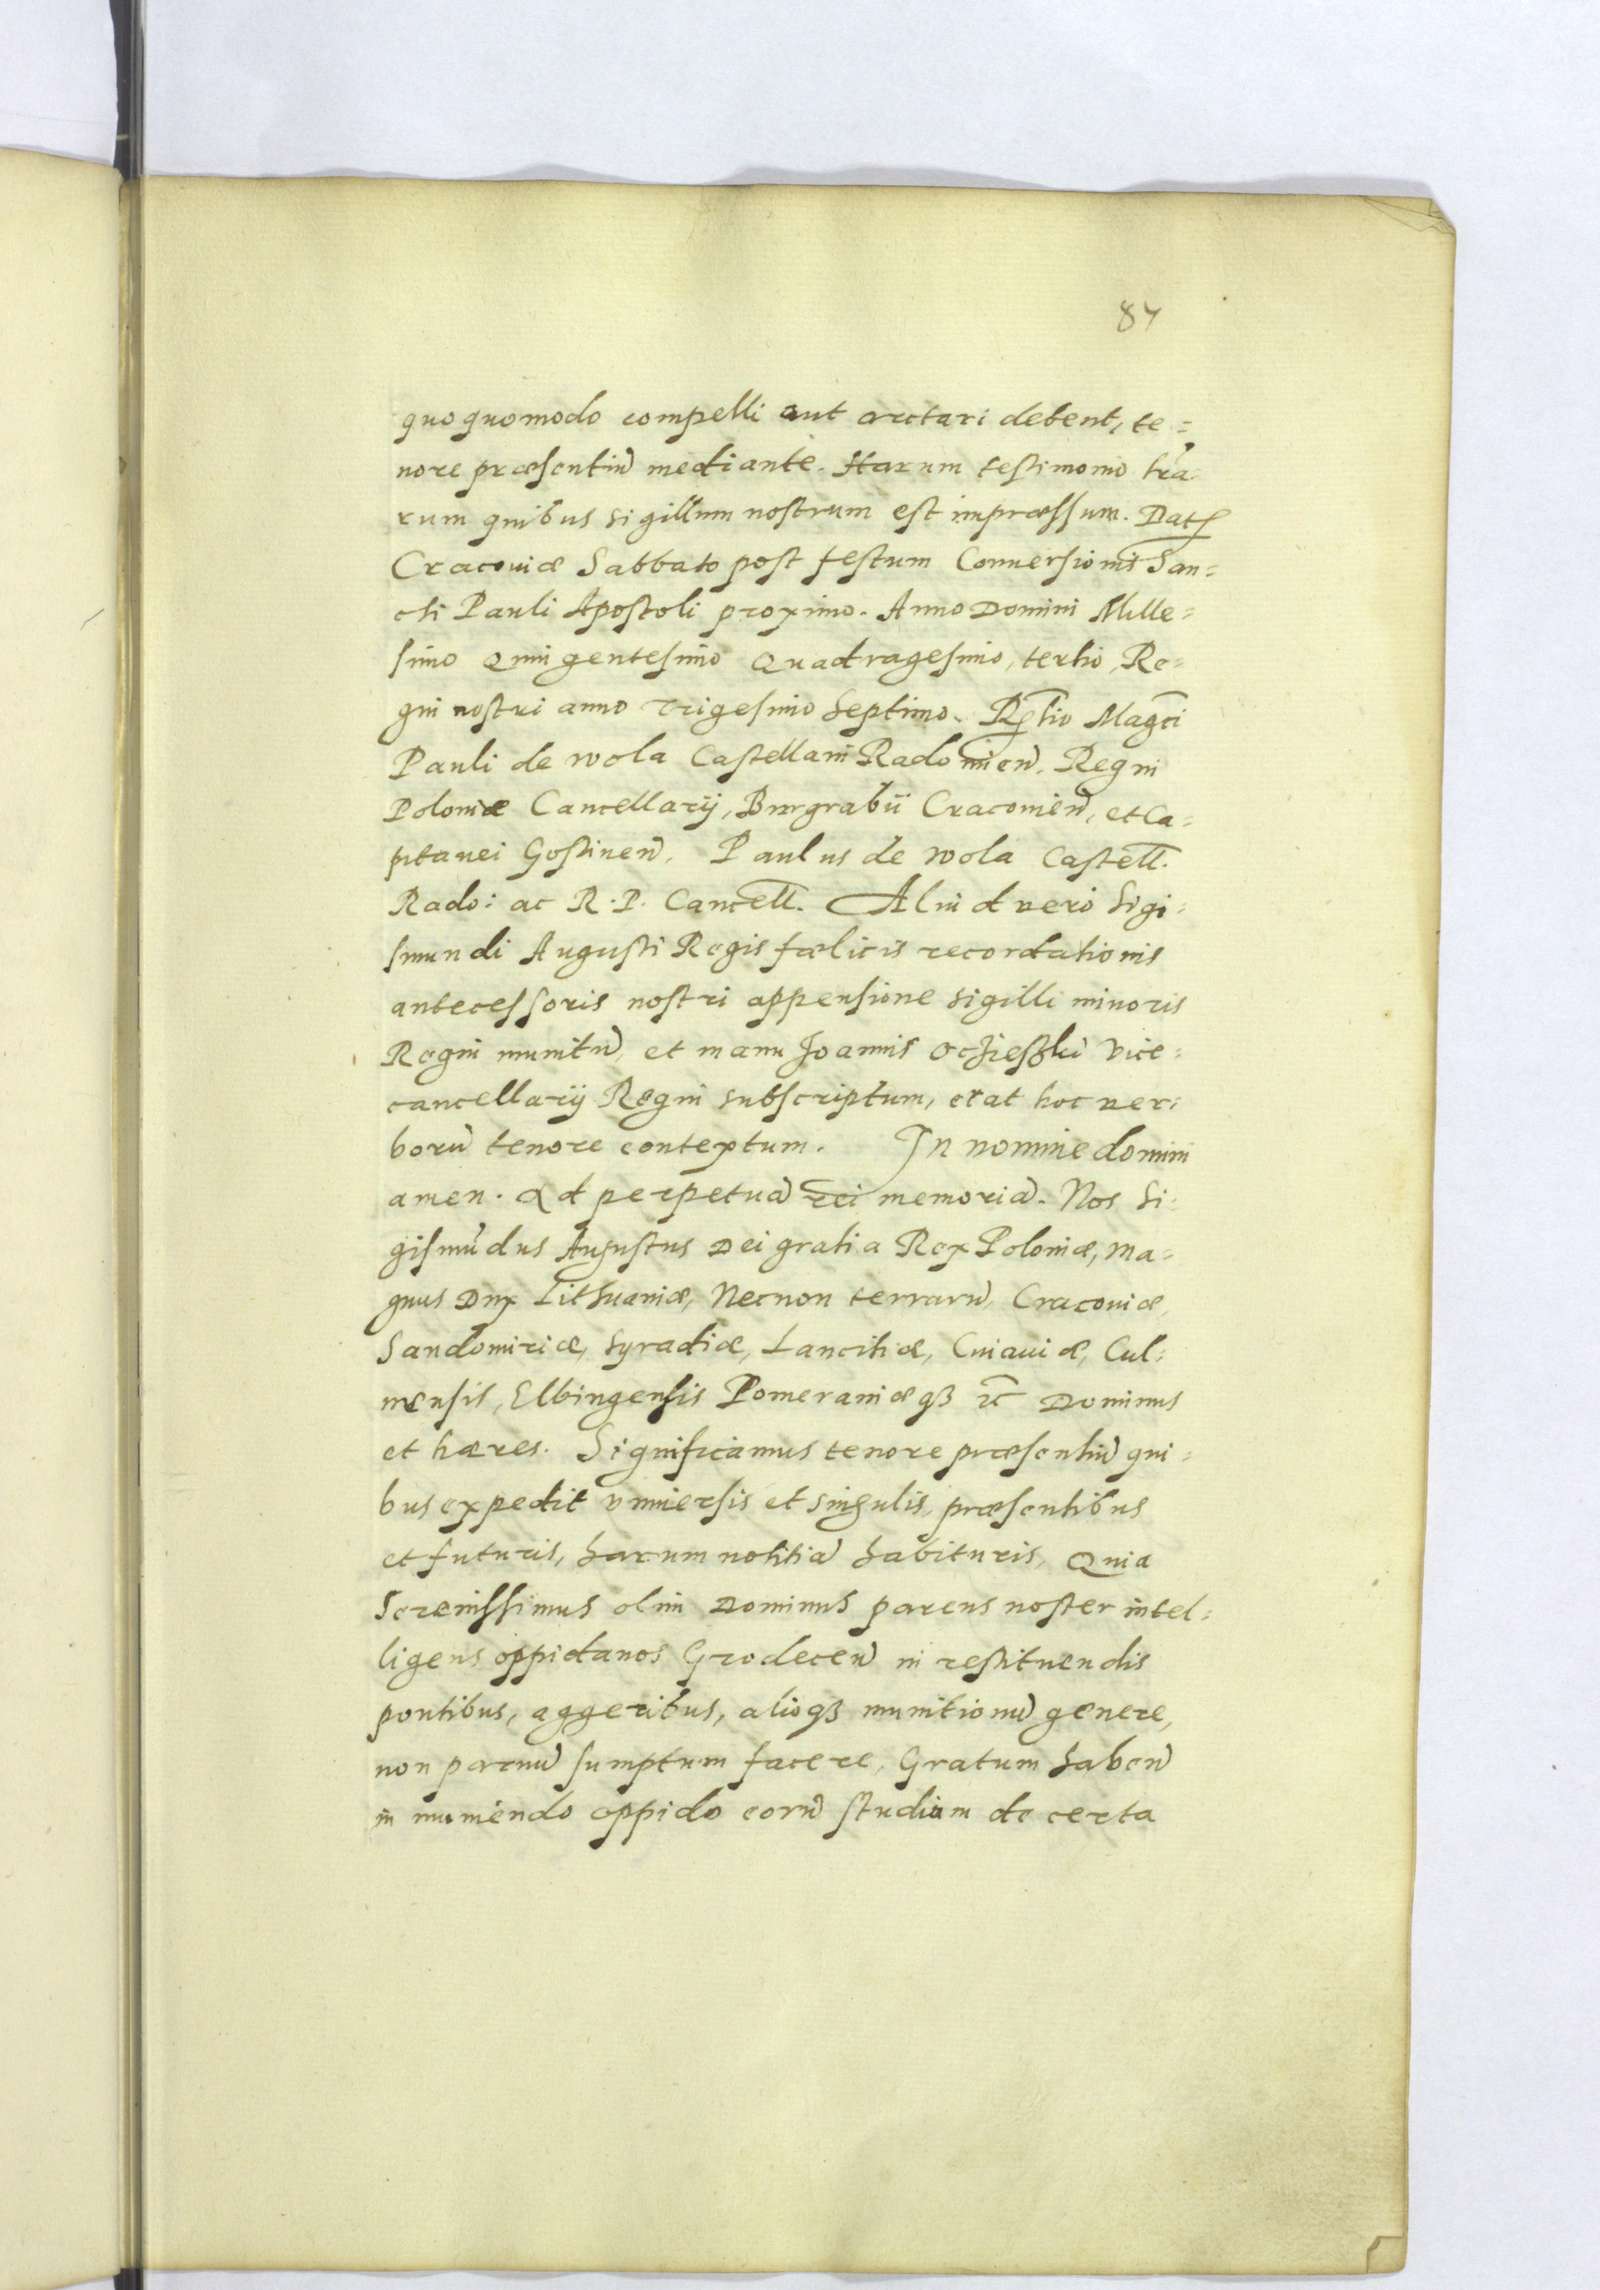 87
quoquomodo compelli aut arctari debent, te=
nore præsentiũ mediante. Harum testimonio l̃ra
rum quibus sigillum nostrum est impræssum. Dat
Cracouiæ Sabbato post festum Conuersionis San=
cti Pauli Apostoli proximo. Anno Domini Mille=
simo Quingentesimo Quadragesimo, tertio, Re=
gni nostri anno Trigesimo Septimo. R̃tio Mag̃ci
Pauli de Wola Castellani Radomien̄. Regni
Poloniæ Cancellarij, Burgrabii Cracouien̄, et Ca=
pitanei Gostinen̄. Paulus de Wola Castell̃.
Rado: ac R. P. Cancell̃. Aliud vero Sigi=
smundi Augusti Regis fælicis recordationis
antecessoris nostri appensione sigilli minoris
Regni munitũ, et manu Joannis Oczieszki Vice=
cancellarij Regni subscriptum, erat hoc ver=
borũ tenore contextum. In nomine domini
amen. Ad perpetuã rei memoriã. Nos Si=
gismũdus Augustus Dei gratia Rex Poloniæ, Ma=
gnus Dux Lithuaniæ, Necnon terrarũ, Cracouiæ,
Sandomiriæ, Syradiæ, Lancitiæ, Cuiauiæ, Cul=
mensis, Elbingensis Pomeraniæqꝫ ꝛc̃ Dominus
et hæres. Significamus tenore præsentiũ qui=
bus expedit vniuersis et singulis, præsentibus
et futuris, harum notitiã habituris, Quia
Serenissimus olim Dominus parens noster intel=
ligens oppidanos Grodecen̄ in restituendis
pontibus, aggeribus, alioqꝫ munitionũ genere,
non paruũ sumptum facere, Gratum haben̄
in muniendo oppido eorũ studium de certa